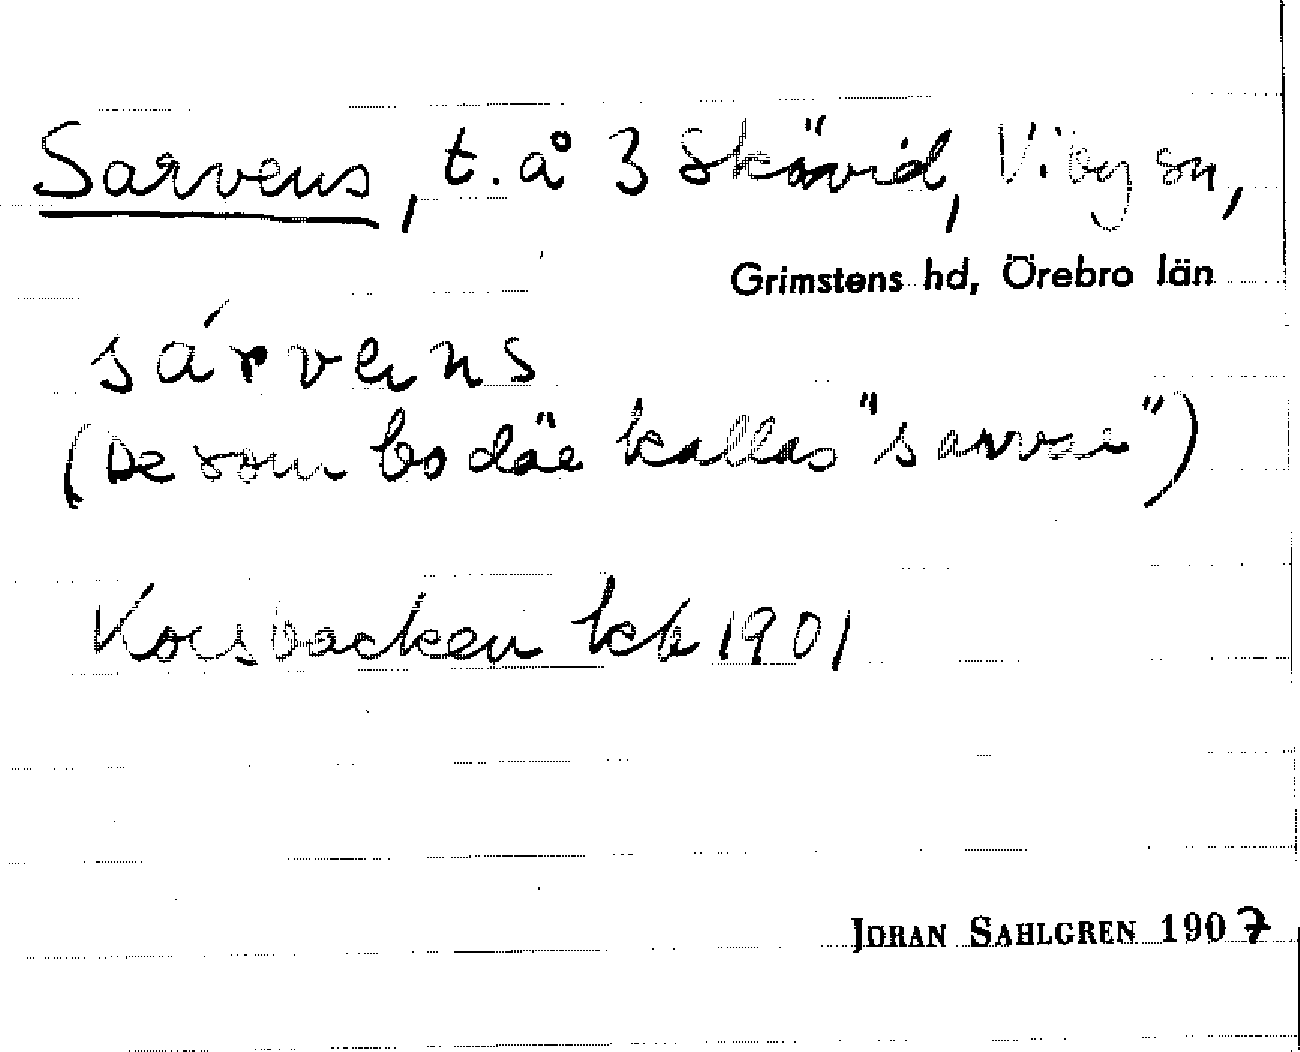 Sarvens, t. å 3 Skävid, Viby sn,
Grimstens hd, Örebro län
sárvens
(De som bo där kallas "sarvar")
Korsbacken kk 1901
JÖRAN SAHLGREN 1907